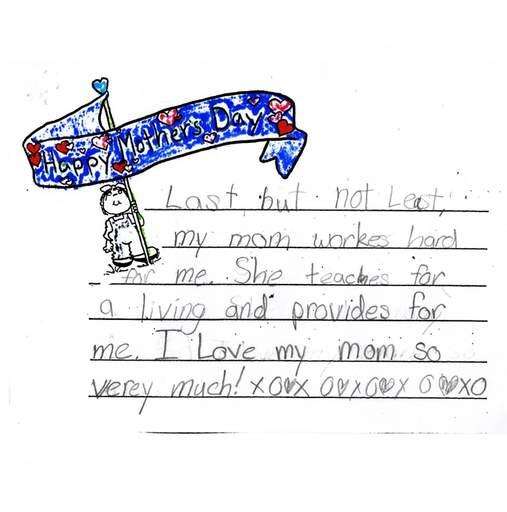 Happy Mothers Day
Last, but not Least,
my mom workes hard
for me. She teaches for
a living and provides for
me. I Love my mom so
verey much! XO♥X O♥XO♥X O♥♥XO